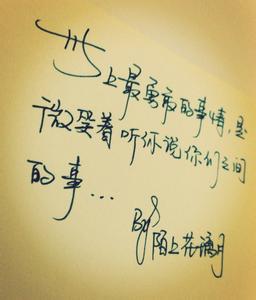 世上最勇敢的事情，是
微笑着听你说你们之间
的事...
By
陌上花满月